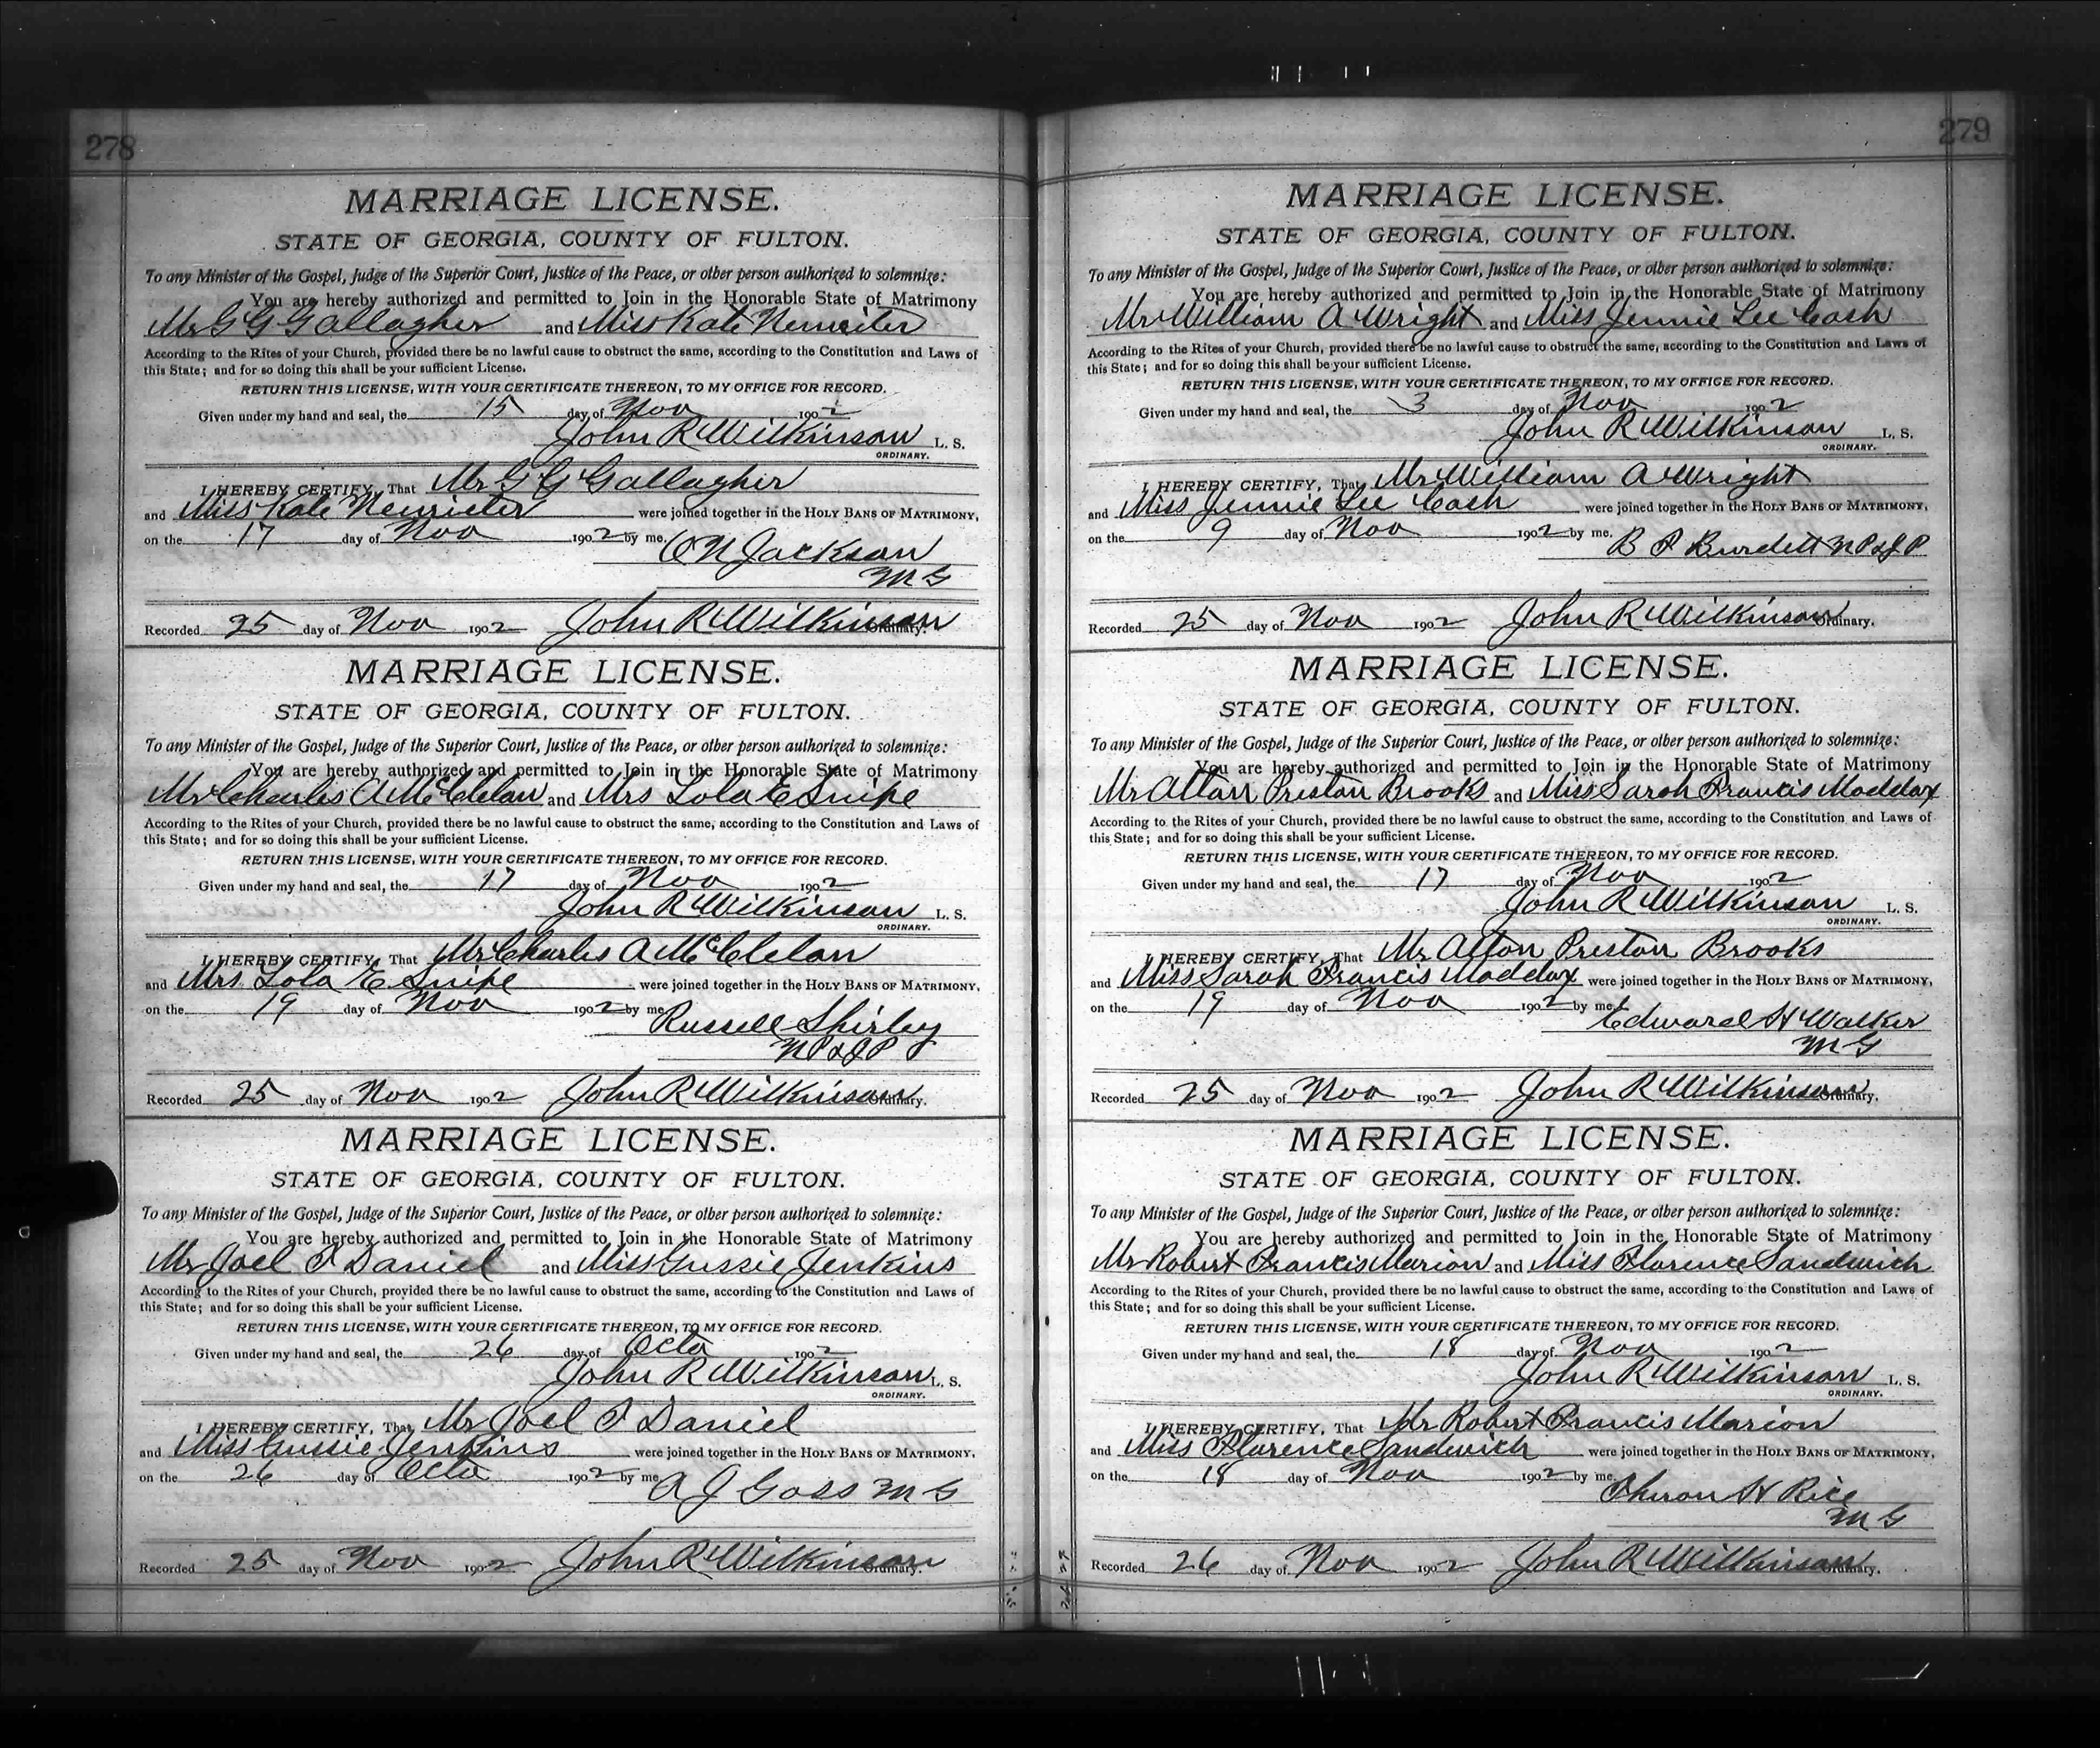 278
MARRIAGE LICENSE.
STATE OF GEORGIA, COUNTY OF FULTON.
To any Minister of the Gospel, Judge of the Superior Court, Justice of the Peace, or other person authorized to solemnize:
You are hereby authorized and permitted to Join in the Honorable State of Matrimony
Mr G G Gallagher and Miss Kate
According to the Rites of your Church, provided there be no lawful cause to obstruct the same, according to the Constitution and Laws of
this State; and for so doing this shall be your sufficient License.
RETURN THIS LICENSE, WITH YOUR CERTIFICATE THEREON, TO MY OFFICE FOR RECORD.
Given under my hand and seal, the 15 day of Nov 1902
John R Wilkinson L. S.
ORDINARY.
I HEREBY CERTIFY, That Mr G G Gallagher
and Miss Kate were joined together in the HOLY BANS OF MATRIMONY,
on the 17 day of Nov 1902 by me.
O N Jackson
M G
Recorded 25 day of Nov 1902 John R Wilkinson Ordinary.
MARRIAGE LICENSE.
STATE OF GEORGIA, COUNTY OF FULTON.
To any Minister of the Gospel, Judge of the Superior Court, Justice of the Peace, or other person authorized to solemnize:
You are hereby authorized and permitted to Join in the Honorable State of Matrimony
Mr Charles A McClelan and Mrs Lola E Snipe
According to the Rites of your Church, provided there be no lawful cause to obstruct the same, according to the Constitution and Laws of
this State; and for so doing this shall be your sufficient License.
RETURN THIS LICENSE, WITH YOUR CERTIFICATE THEREON, TO MY OFFICE FOR RECORD.
Given under my hand and seal, the 17 day of Nov 1902
John R Wilkinson L. S.
ORDINARY.
I HEREBY CERTIFY, That Mr Charles A McClelan
and Mrs Lola E Snipe were joined together in the HOLY BANS OF MATRIMONY,
on the 19 day of Nov 1902 by me.
Russell Shirley
N P & J P
Recorded 25 day of Nov 1902 John R Wilkinson Ordinary.
MARRIAGE LICENSE.
STATE OF GEORGIA, COUNTY OF FULTON.
To any Minister of the Gospel, Judge of the Superior Court, Justice of the Peace, or other person authorized to solemnize:
You are hereby authorized and permitted to Join in the Honorable State of Matrimony
Mr Joel T Daniel and Miss Gussie Jenkins
According to the Rites of your Church, provided there be no lawful cause to obstruct the same, according to the Constitution and Laws of
this State; and for so doing this shall be your sufficient License.
RETURN THIS LICENSE, WITH YOUR CERTIFICATE THEREON, TO MY OFFICE FOR RECORD.
Given under my hand and seal, the 26 day of Octo 1902
John R Wilkinson L. S.
ORDINARY.
I HEREBY CERTIFY, That Mr Joel T Daniel
and Miss Gussie Jenkins were joined together in the HOLY BANS OF MATRIMONY,
on the 26 day of Octo 1902 by me
A J Goss M G
Recorded 25 day of Nov 1902 John R Wilkinson Ordinary.
279
MARRIAGE LICENSE.
STATE OF GEORGIA, COUNTY OF FULTON.
To any Minister of the Gospel, Judge of the Superior Court, Justice of the Peace, or other person authorized to solemnize:
You are hereby authorized and permitted to Join in the Honorable State of Matrimony
Mr William A Wright and Miss Jennie Lee Cash
According to the Rites of your Church, provided there be no lawful cause to obstruct the same, according to the Constitution and Laws of
this State; and for so doing this shall be your sufficient License.
RETURN THIS LICENSE, WITH YOUR CERTIFICATE THEREON, TO MY OFFICE FOR RECORD.
Given under my hand and seal, the 3 day of Nov 1902
John R Wilkinson L. S.
ORDINARY.
I HEREBY CERTIFY, That Mr William A Wright
and Miss Jennie Lee Cash were joined together in the HOLY BANS OF MATRIMONY,
on the 9 day of Nov 1902 by me.
B P Burdett N P & J P
Recorded 25 day of Nov 1902 John R Wilkinson Ordinary.
MARRIAGE LICENSE.
STATE OF GEORGIA, COUNTY OF FULTON.
To any Minister of the Gospel, Judge of the Superior Court, Justice of the Peace, or other person authorized to solemnize:
You are hereby authorized and permitted to Join in the Honorable State of Matrimony
Mr Alton Preston Brooks and Miss Sarah Francis Maddox
According to the Rites of your Church, provided there be no lawful cause to obstruct the same, according to the Constitution and Laws of
this State; and for so doing this shall be your sufficient License.
RETURN THIS LICENSE, WITH YOUR CERTIFICATE THEREON, TO MY OFFICE FOR RECORD.
Given under my hand and seal, the 17 day of Nov 1902
John R Wilkinson L. S.
ORDINARY.
I HEREBY CERTIFY, That Mr Alton Preston Brooks
and Miss Sarah Francis Maddox were joined together in the HOLY BANS OF MATRIMONY,
on the 19 day of Nov 1902 by me.
Edward H Walker
M G
Recorded 25 day of Nov 1902 John R Wilkinson Ordinary.
MARRIAGE LICENSE.
STATE OF GEORGIA, COUNTY OF FULTON.
To any Minister of the Gospel, Judge of the Superior Court, Justice of the Peace, or other person authorized to solemnize:
You are hereby authorized and permitted to Join in the Honorable State of Matrimony
Mr Robert Francis Marion and Miss Florence Sandwich
According to the Rites of your Church, provided there be no lawful cause to obstruct the same, according to the Constitution and Laws of
this State; and for so doing this shall be your sufficient License.
RETURN THIS LICENSE, WITH YOUR CERTIFICATE THEREON, TO MY OFFICE FOR RECORD.
Given under my hand and seal, the 18 day of Nov 1902
John R Wilkinson L. S.
ORDINARY.
I HEREBY CERTIFY, That Mr Robert Francis Marion
and Miss Florence Sandwich were joined together in the HOLY BANS OF MATRIMONY,
on the 18 day of Nov 1902 by me.
Theron H Rice
M G
Recorded 26 day of Nov 1902 John R Wilkinson Ordinary.